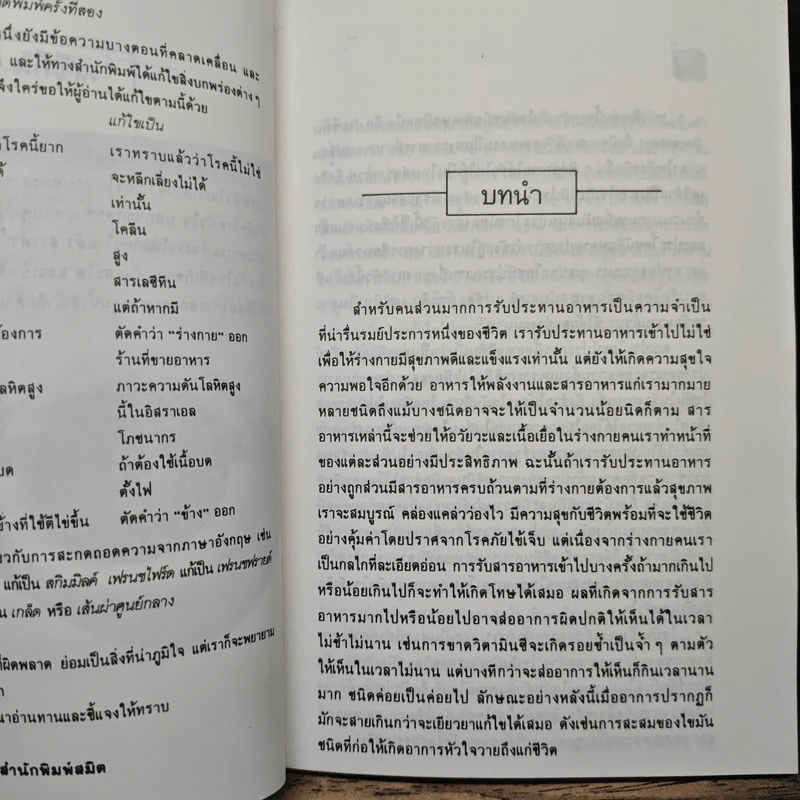 ดพิมพ์ครั้งที่สอง
นึ่งยังมีข้อความบางตอนที่คลาดเคลื่อน และ
และให้ทางสำนักพิมพ์ได้แก้ไขสิ่งบกพร่องต่างๆ
จึงใคร่ขอให้ผู้อ่านได้แก้ไขตามนี้ด้วย
แก้ไขเป็น
โรคนี้ยาก เราทราบแล้วว่าโรคนี้ไม่ใช่
ด้ จะหลีกเลี่ยงไม่ได้
เท่านั้น
โคลีน
สูง
สารเลซีทีน
แต่ถ้าหากมี
้องการ ตัดคำว่า "ร่างกาย" ออก
ร้านที่ขายอาหาร
ลหิตสูง ภาวะความดันโลหิตสูง
นี้ในอิสราเอล
โภชนากร
บด ถ้าต้องใช้เนื้อบด
ตั้งไฟ
ข้างที่ใช้ตีไข่ขึ้น ตัดคำว่า "ข้าง" ออก
วกับการสะกดถอดความจากภาษาอังกฤษ เช่น
แก้เป็น สกิมมิลค์ เฟรนชไฟร์ด แก้เป็น เฟรนชฟรายด์
น เกล็ด หรือ เส้นผ่าศูนย์กลาง
ที่ผิดพลาด ย่อมเป็นสิ่งที่น่าภูมิใจ แต่เราก็จะพยายาม
ก
นาอ่านทานและชี้แจงให้ทราบ
สำนักพิมพ์สมิต
บทนำ
สำหรับคนส่วนมากการรับประทานอาหารเป็นความจำเป็น
ที่น่ารื่นรมย์ประการหนึ่งของชีวิต เรารับประทานอาหารเข้าไปไม่ใช่
เพื่อให้ร่างกายมีสุขภาพดีและแข็งแรงเท่านั้น แต่ยังให้เกิดความสุขใจ
ความพอใจอีกด้วย อาหารให้พลังงานและสารอาหารแก่เรามากมาย
หลายชนิดถึงแม้บางชนิดอาจจะให้เป็นจำนวนน้อยนิดก็ตาม สาร
อาหารเหล่านี้จะช่วยให้อวัยวะและเนื้อเยื่อในร่างกายคนเราทำหน้าที่
ของแต่ละส่วนอย่างมีประสิทธิภาพ ฉะนั้นถ้าเรารับประทานอาหาร
อย่างถูกส่วนมีสารอาหารครบถ้วนตามที่ร่างกายต้องการแล้วสุขภาพ
เราจะสมบูรณ์ คล่องแคล่วว่องไว มีความสุขกับชีวิตพร้อมที่จะใช้ชีวิต
อย่างคุ้มค่าโดยปราศจากโรคภัยไข้เจ็บ แต่เนื่องจากร่างกายคนเรา
เป็นกลไกที่ละเอียดอ่อน การรับสารอาหารเข้าไปบางครั้งถ้ามากเกินไป
หรือน้อยเกินไปก็จะทำให้เกิดโทษได้เสมอ ผลที่เกิดจากการรับสาร
อาหารมากไปหรือน้อยไปอาจส่ออาการผิดปกติให้เห็นได้ในเวลา
ไม่ช้าไม่นาน เช่นการขาดวิตามินซีจะเกิดรอยช้ำเป็นจ้ำๆ ตามตัว
ให้เห็นในเวลาไม่นาน แต่บางทีกว่าจะส่ออาการให้เห็นก็กินเวลานาน
มาก ชนิดค่อยเป็นค่อยไป ลักษณะอย่างหลังนี้เมื่ออาการปรากฏก็
มักจะสายเกินกว่าจะเยียวยาแก้ไขได้เสมอ ดังเช่นการสะสมของไขมัน
ชนิดที่ก่อให้เกิดอาการหัวใจวายถึงแก่ชีวิต